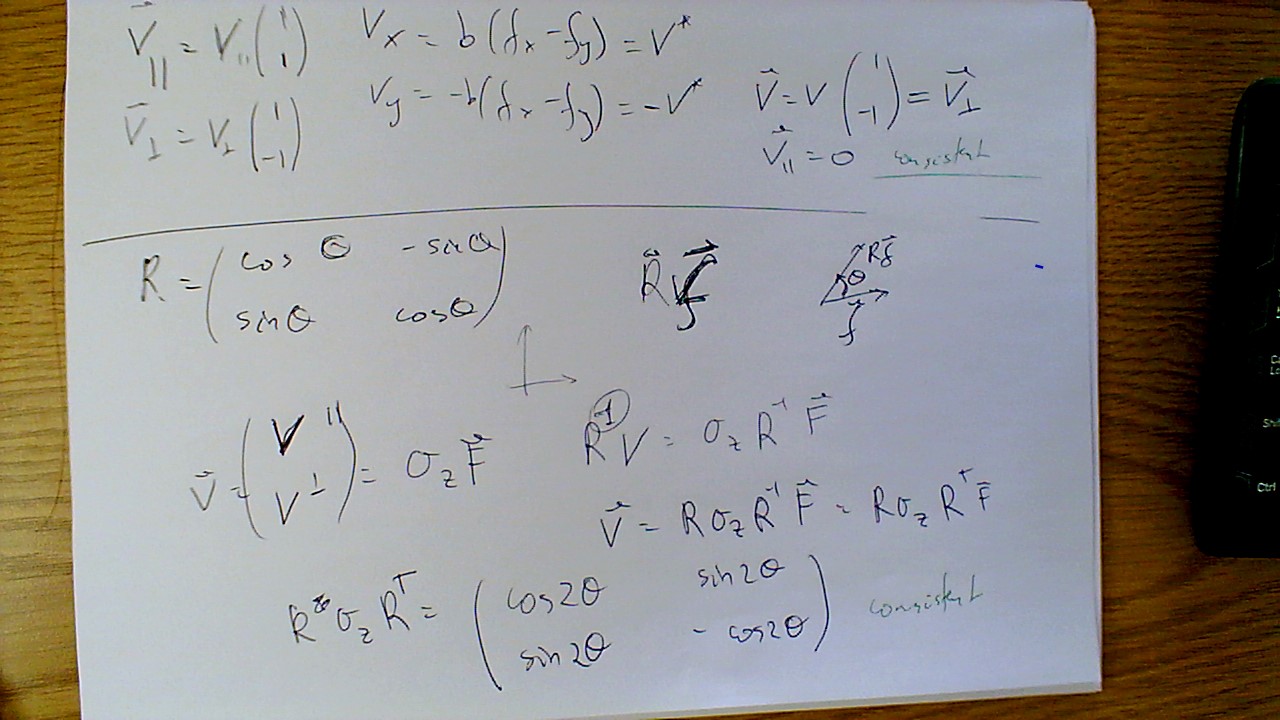 V⃗∥ = V∥ (1 1)   Vx = b(fx - fy) = V*
V⃗⊥ = V⊥ (1 -1)   Vy = -b(fx - fy) = -V*   V⃗ = V (1 -1) = V⃗⊥
V⃗∥ = 0   consistent
R = (cos θ   -sin θ
sin θ   cos θ)   Rf⃗   θ   f⃗
V⃗ = (V∥ V⊥) = σz F⃗   R⁻¹ V = σz R⁻¹ F⃗
V⃗ = R σz R⁻¹ F⃗ = R σz Rᵀ F⃗
R σz Rᵀ = (cos 2θ   sin 2θ
sin 2θ   - cos 2θ)   consistent
Ctrl